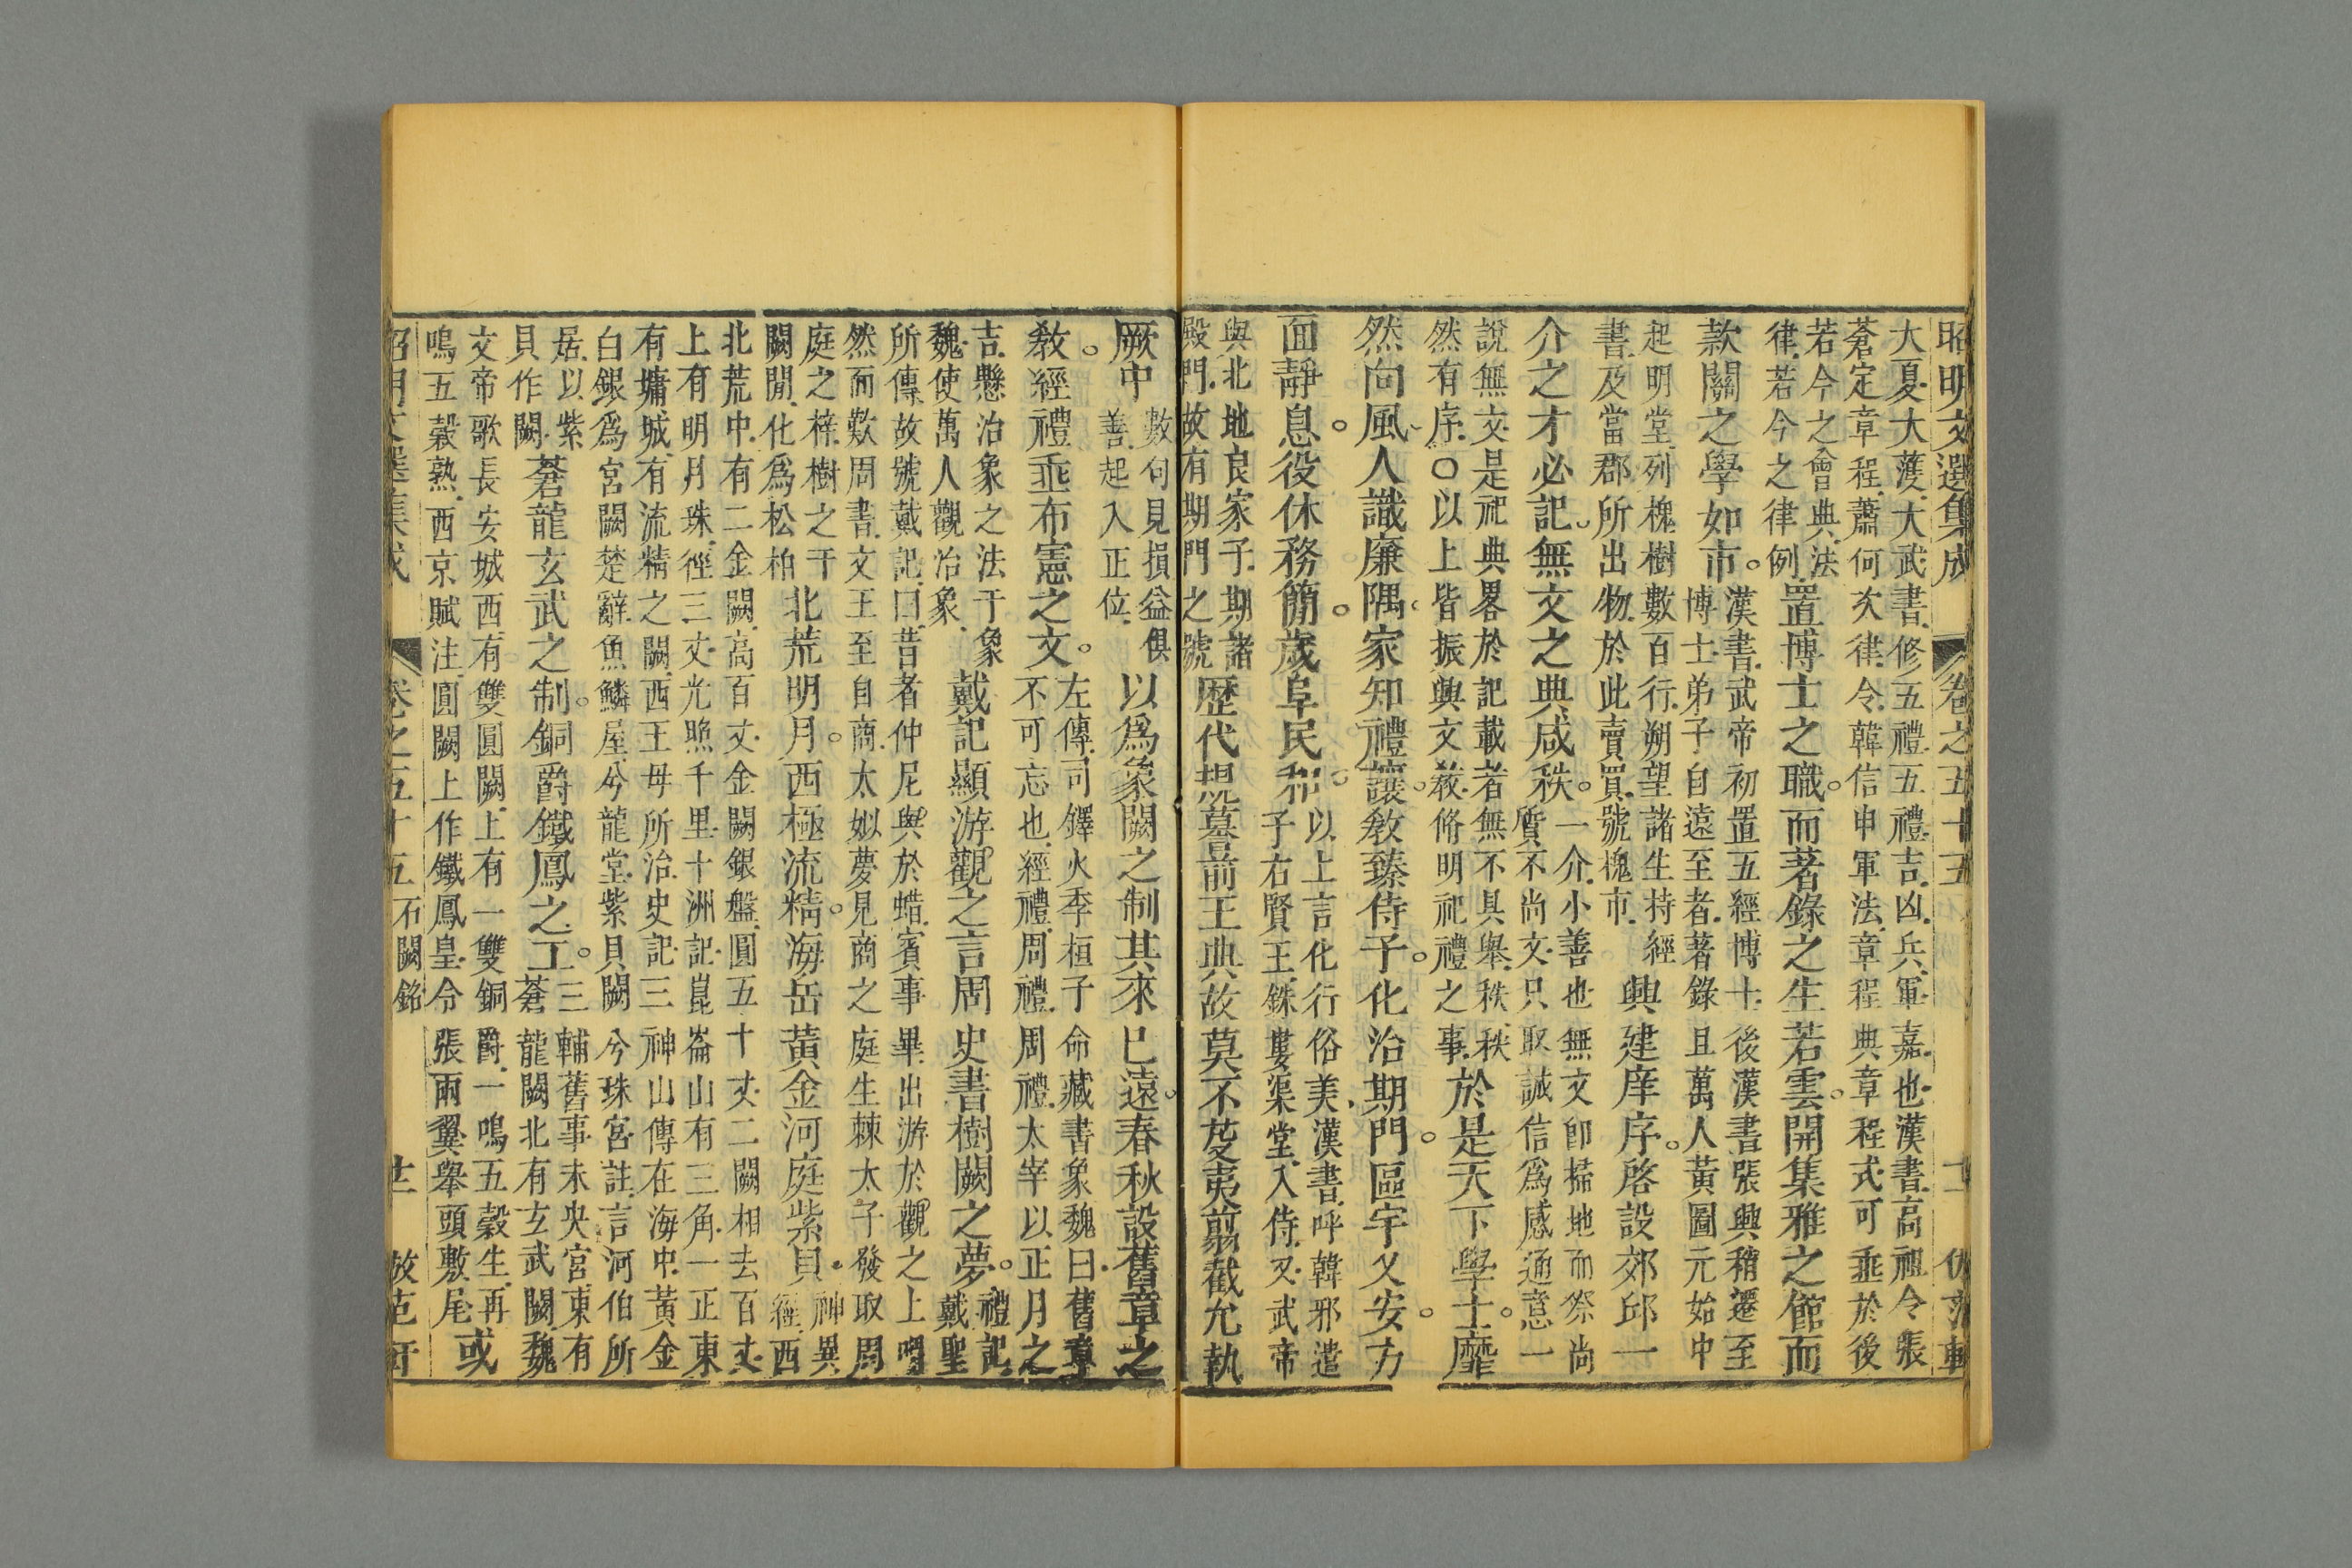 昭明文選集成 卷之五十五
大夏大濩大武書修五禮五禮吉凶兵軍嘉也漢書高祖令張
蒼定章程蕭何次律令韓信申軍法章程典章程式可垂於後
若今之會典法
律若今之律例
置博士之職而著錄之生若雲開集雅之館而
款關之學如市
漢書武帝初置五經博士後漢書張興稍遷至
博士弟子自遠至者著錄且萬人黃圖元始中
起明堂列槐樹數百行朔望諸生持經
書及當郡所出物於此賣買號槐市
興建庠序啓設郊邱一
介之才必記無文之典咸秩
一介小善也無文卽掃地而祭尚
質不尚文只取誠信爲感通意一
說無文是祀典畧於記載者無不具舉秩秩
然有序○以上皆振興文教脩明祀禮之事
於是天下學士靡
然向風人識廉隅家知禮讓敎臻侍子化洽期門區宇乂安方
面靜息役休務簡歲阜民和
以上言化行俗美漢書呼韓邪遣
子右賢王銖婁渠堂入侍又武帝
與北地良家子期諸
殿門故有期門之號
歷代規謩前王典故莫不芟夷翦截允執
厥中
數句見損益俱
善起入正位
以爲象闕之制其來已遠春秋設舊章之
敎經禮垂布憲之文
左傳司鐸火季桓子命藏書象魏曰舊章
不可忘也經禮周禮周禮太宰以正月之
吉懸治象之法于象
魏使萬人觀治象
戴記顯游觀之言周史書樹闕之夢
禮記戴聖
所傳故號戴記曰昔者仲尼與於蜡賓事畢出游於觀之上喟
然而歎周書文王至自商太姒夢見商之庭生棘太子發取周
庭之梓樹之于
闕閒化爲松柏
北荒明月西極流精海岳黃金河庭紫貝
神異
經西
北荒中有二金闕高百丈金闕銀盤圓五十丈二闕相去百丈
上有明月珠徑三丈光照千里十洲記崑崙山有三角一正東
有墉城有流精之闕西王母所治史記三神山傳在海中黃金
白銀爲宮闕楚辭魚鱗屋兮龍堂紫貝闕兮珠宮註言河伯所
居以紫
貝作闕
蒼龍玄武之制銅爵鐵鳳之工
三輔舊事未央宮東有
蒼龍闕北有玄武闕魏
文帝歌長安城西有雙圓闕上有一雙銅爵一鳴五穀生再
鳴五穀熟西京賦注圓闕上作鐵鳳皇令張兩翼舉頭敷尾
或
卷之五十五 石闕銘